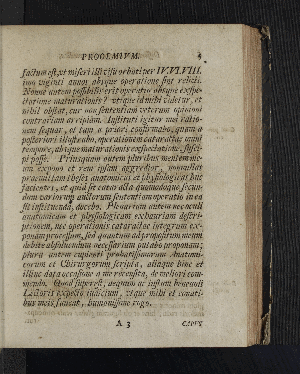 PROOEMIUM. 5
factum est, ut miseri illi visu orbati per IV. VI. VIII.
imo viginti annos absque operatione sint relicti.
Nonne autem possibilis erit operatio absque exspe-
ctatione maturationis? utique id mihi videtur, et
nihil obstat, cur non sententiam veterum opinioni
contrariam arripiam. Institui igitur mei ratio-
nem sequar, et tam a priori confirmabo, quam a
posteriori illustrabo, operationem cataractae omni
tempore, absque maturationis exspectatione, susci-
pi posse. Priusquam autem pluribus mentem me-
am exponet et rem ipsam aggrediar, nonnullas
praemittam theses anatomicas et physiologicas huc
facientes, et quid sit cataracta quomodoque secun-
dum variorum auctorum sententiam operatio in ea
sit instituenda, docebo. Plenariam autem nec oculi
anatomicam et physiologicam exhauriam descri-
ptionem, nec operationis cataractae integram ex-
ponam processum, sed quantum ad propositum meum
debite absolvendum necessarium puto, proponam;
plura autem cupienti probatissimorum Anatomi-
corum et Chirurgorum scripta, aliaque hinc et
illinc data occasione a me recensita, de meliori com-
mendo. Quod superest, aequum ac justum benevoli
Lectoris exspecto judicium, utque mihi et conati-
bus meis faveat, humanissime rogo.
A 3 CAPUT